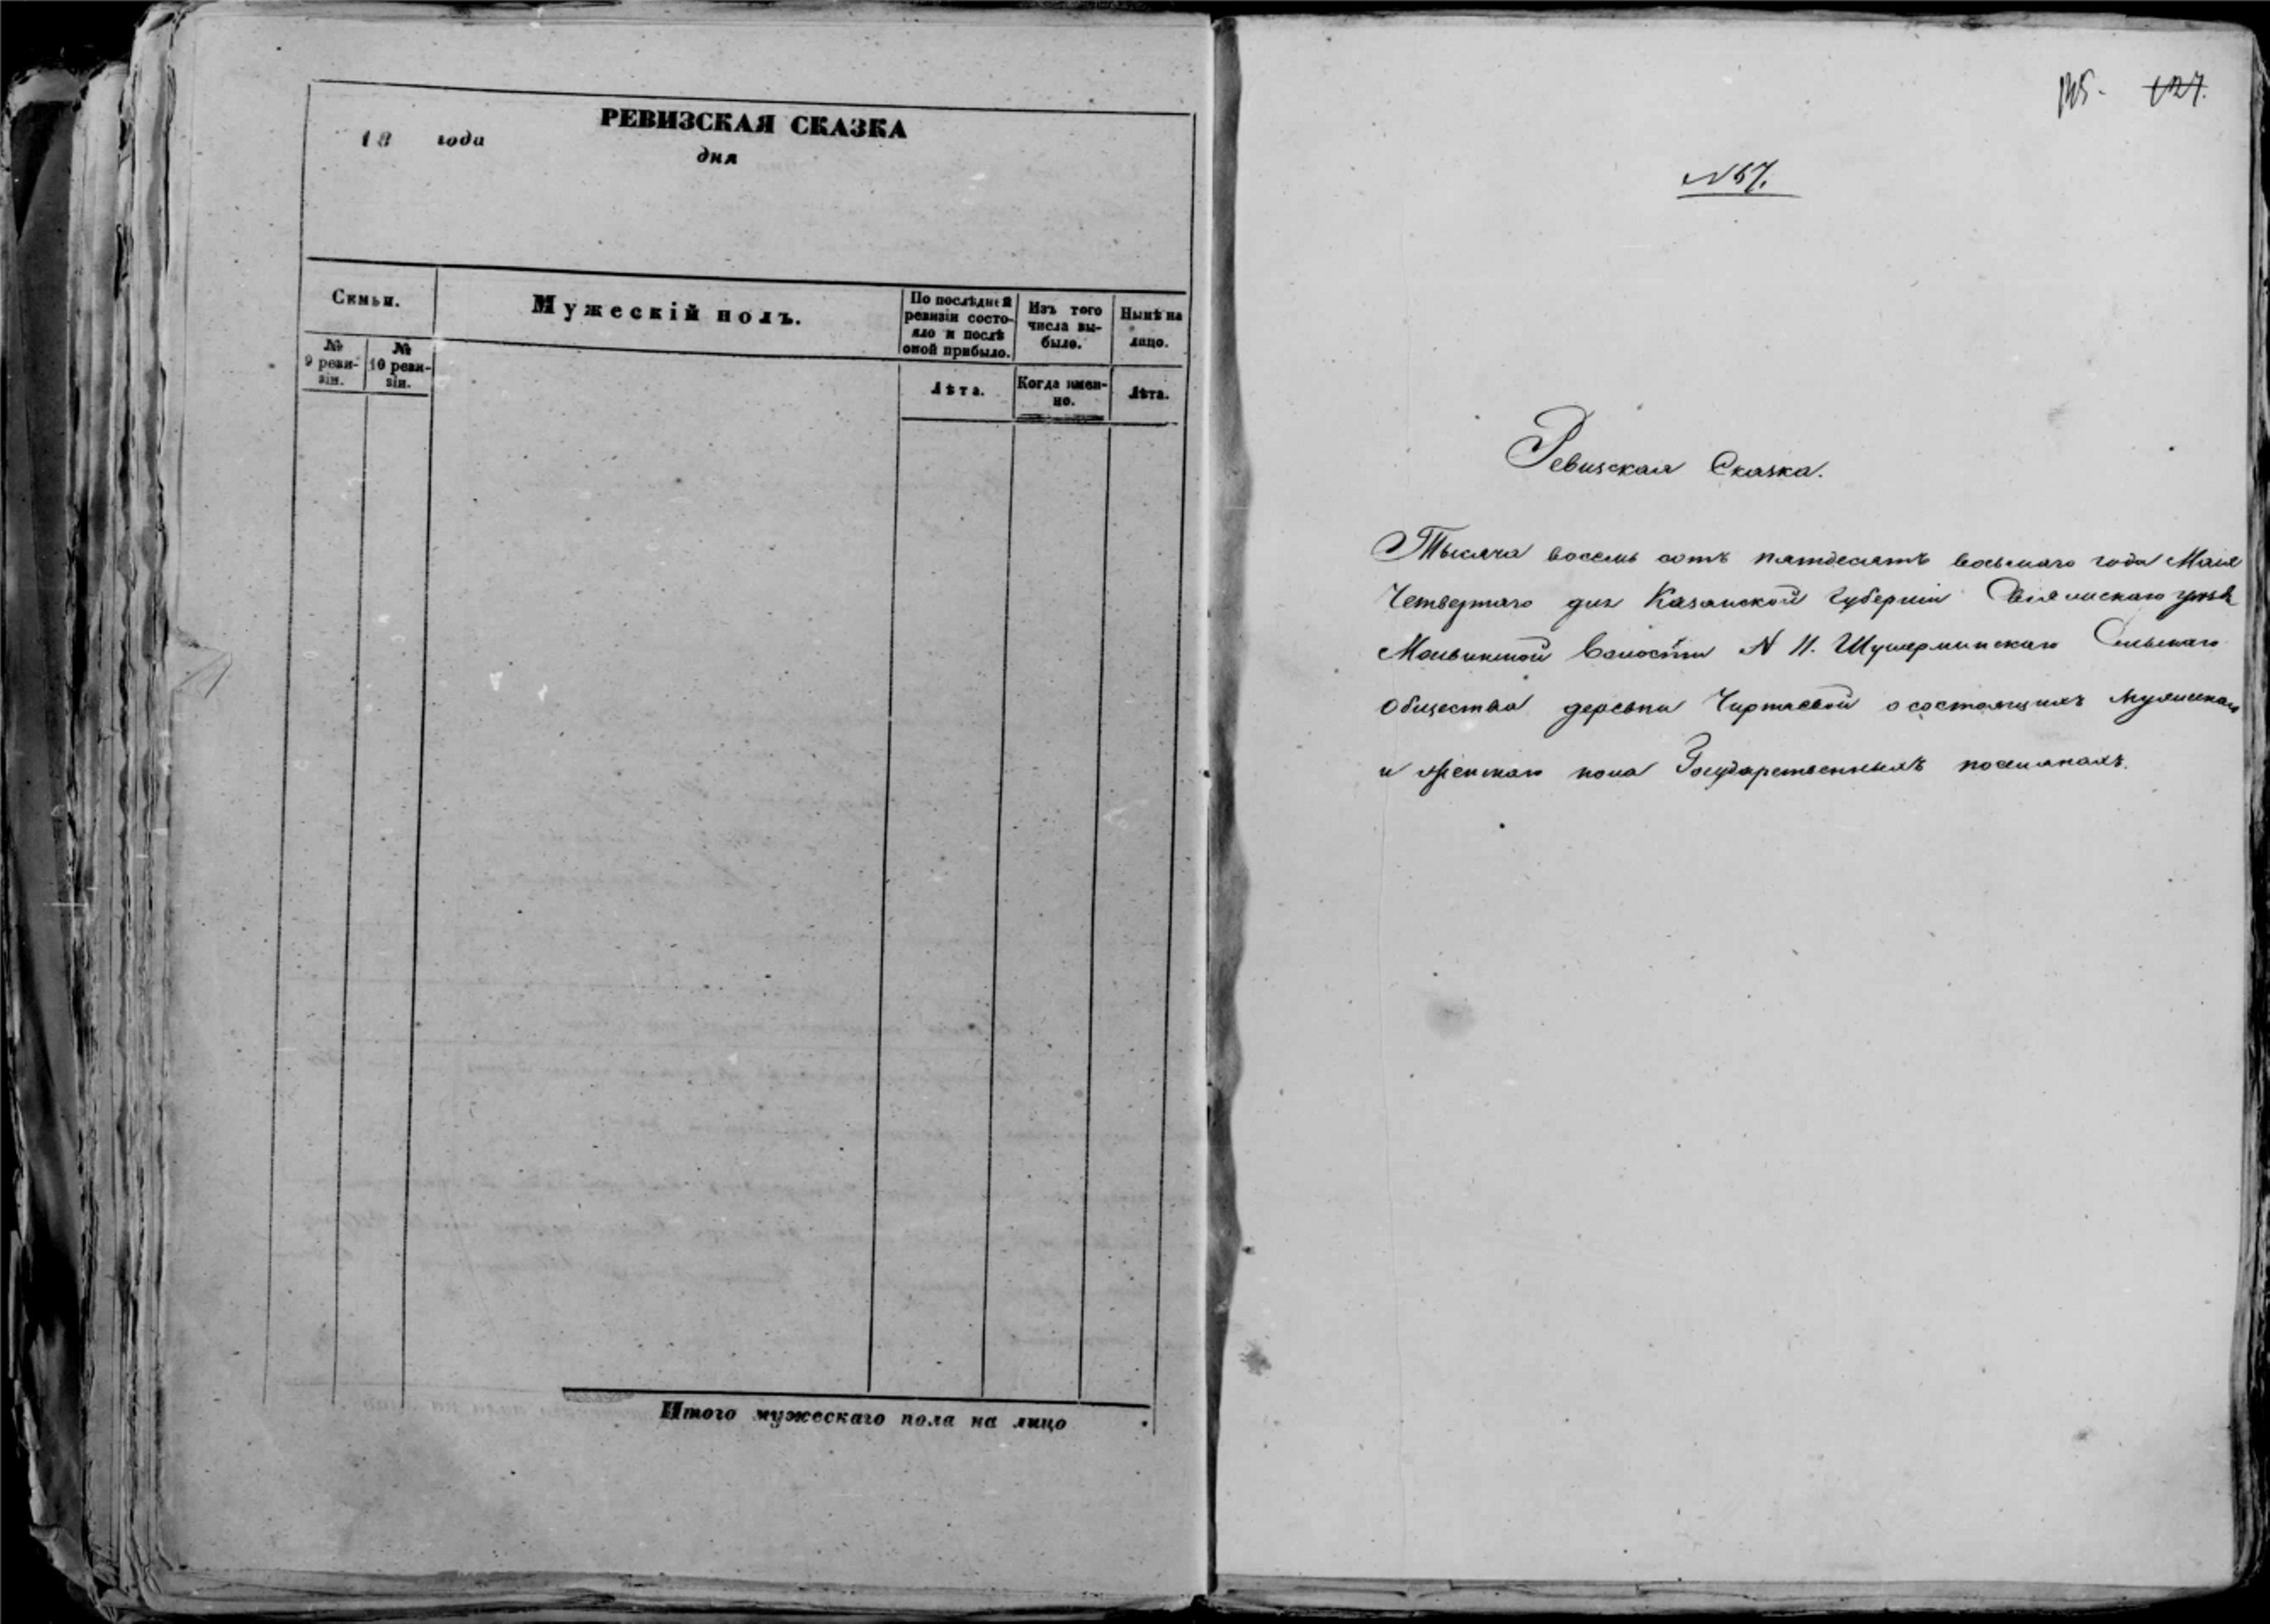 РЕВИЗСКАЯ СКАЗКА
18 года дня
Семьи.
Мужескій полъ.
По послѣдней ревизіи состояло и послѣ оной прибыло.
Изъ того числа выбыло.
Нынѣ на лицо.
№ 9 ревизіи.
№ 10 ревизіи.
Лѣта.
Когда именно.
Лѣта.
Итого мужескаго пола на лицо
127.
N 57.
Ревизская Сказка.
Тысяча восемь сотъ пятдесятъ восьмаго года Маія
Четвертаго дня Казанской Губерніи
волости N 11. Шушерминскаго Сельскаго
Общества деревни Чиртаевой о состоящихъ мужескаго
и женскаго пола Государственныхъ поселянахъ.